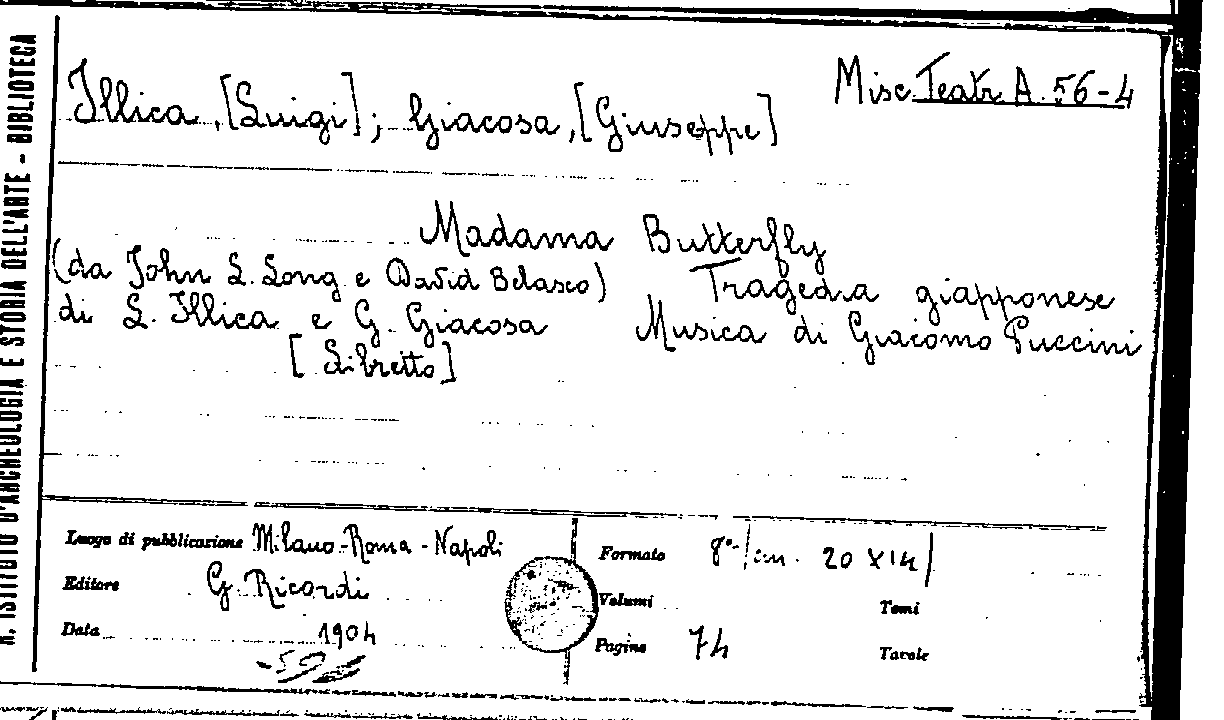 R. ISTITUTO D'ARCHEOLOGIA E STORIA DELL'ARTE - BIBLIOTECA
Misc. Teatr. A. 56-4
Illica, [Luigi]; Giacosa, [Giuseppe]
Madama Butterfly
(da John L. Long e David Belasco) Tragedia giapponese
di L. Illica e G. Giacosa Musica di Giacomo Puccini
[Libretto]
Luogo di pubblicazione Milano-Roma-Napoli
Editore G. Ricordi
Data 1904
Formato 8º /cm. 20 x 14/
Volumi Tomi
Pagine 74 Tavole